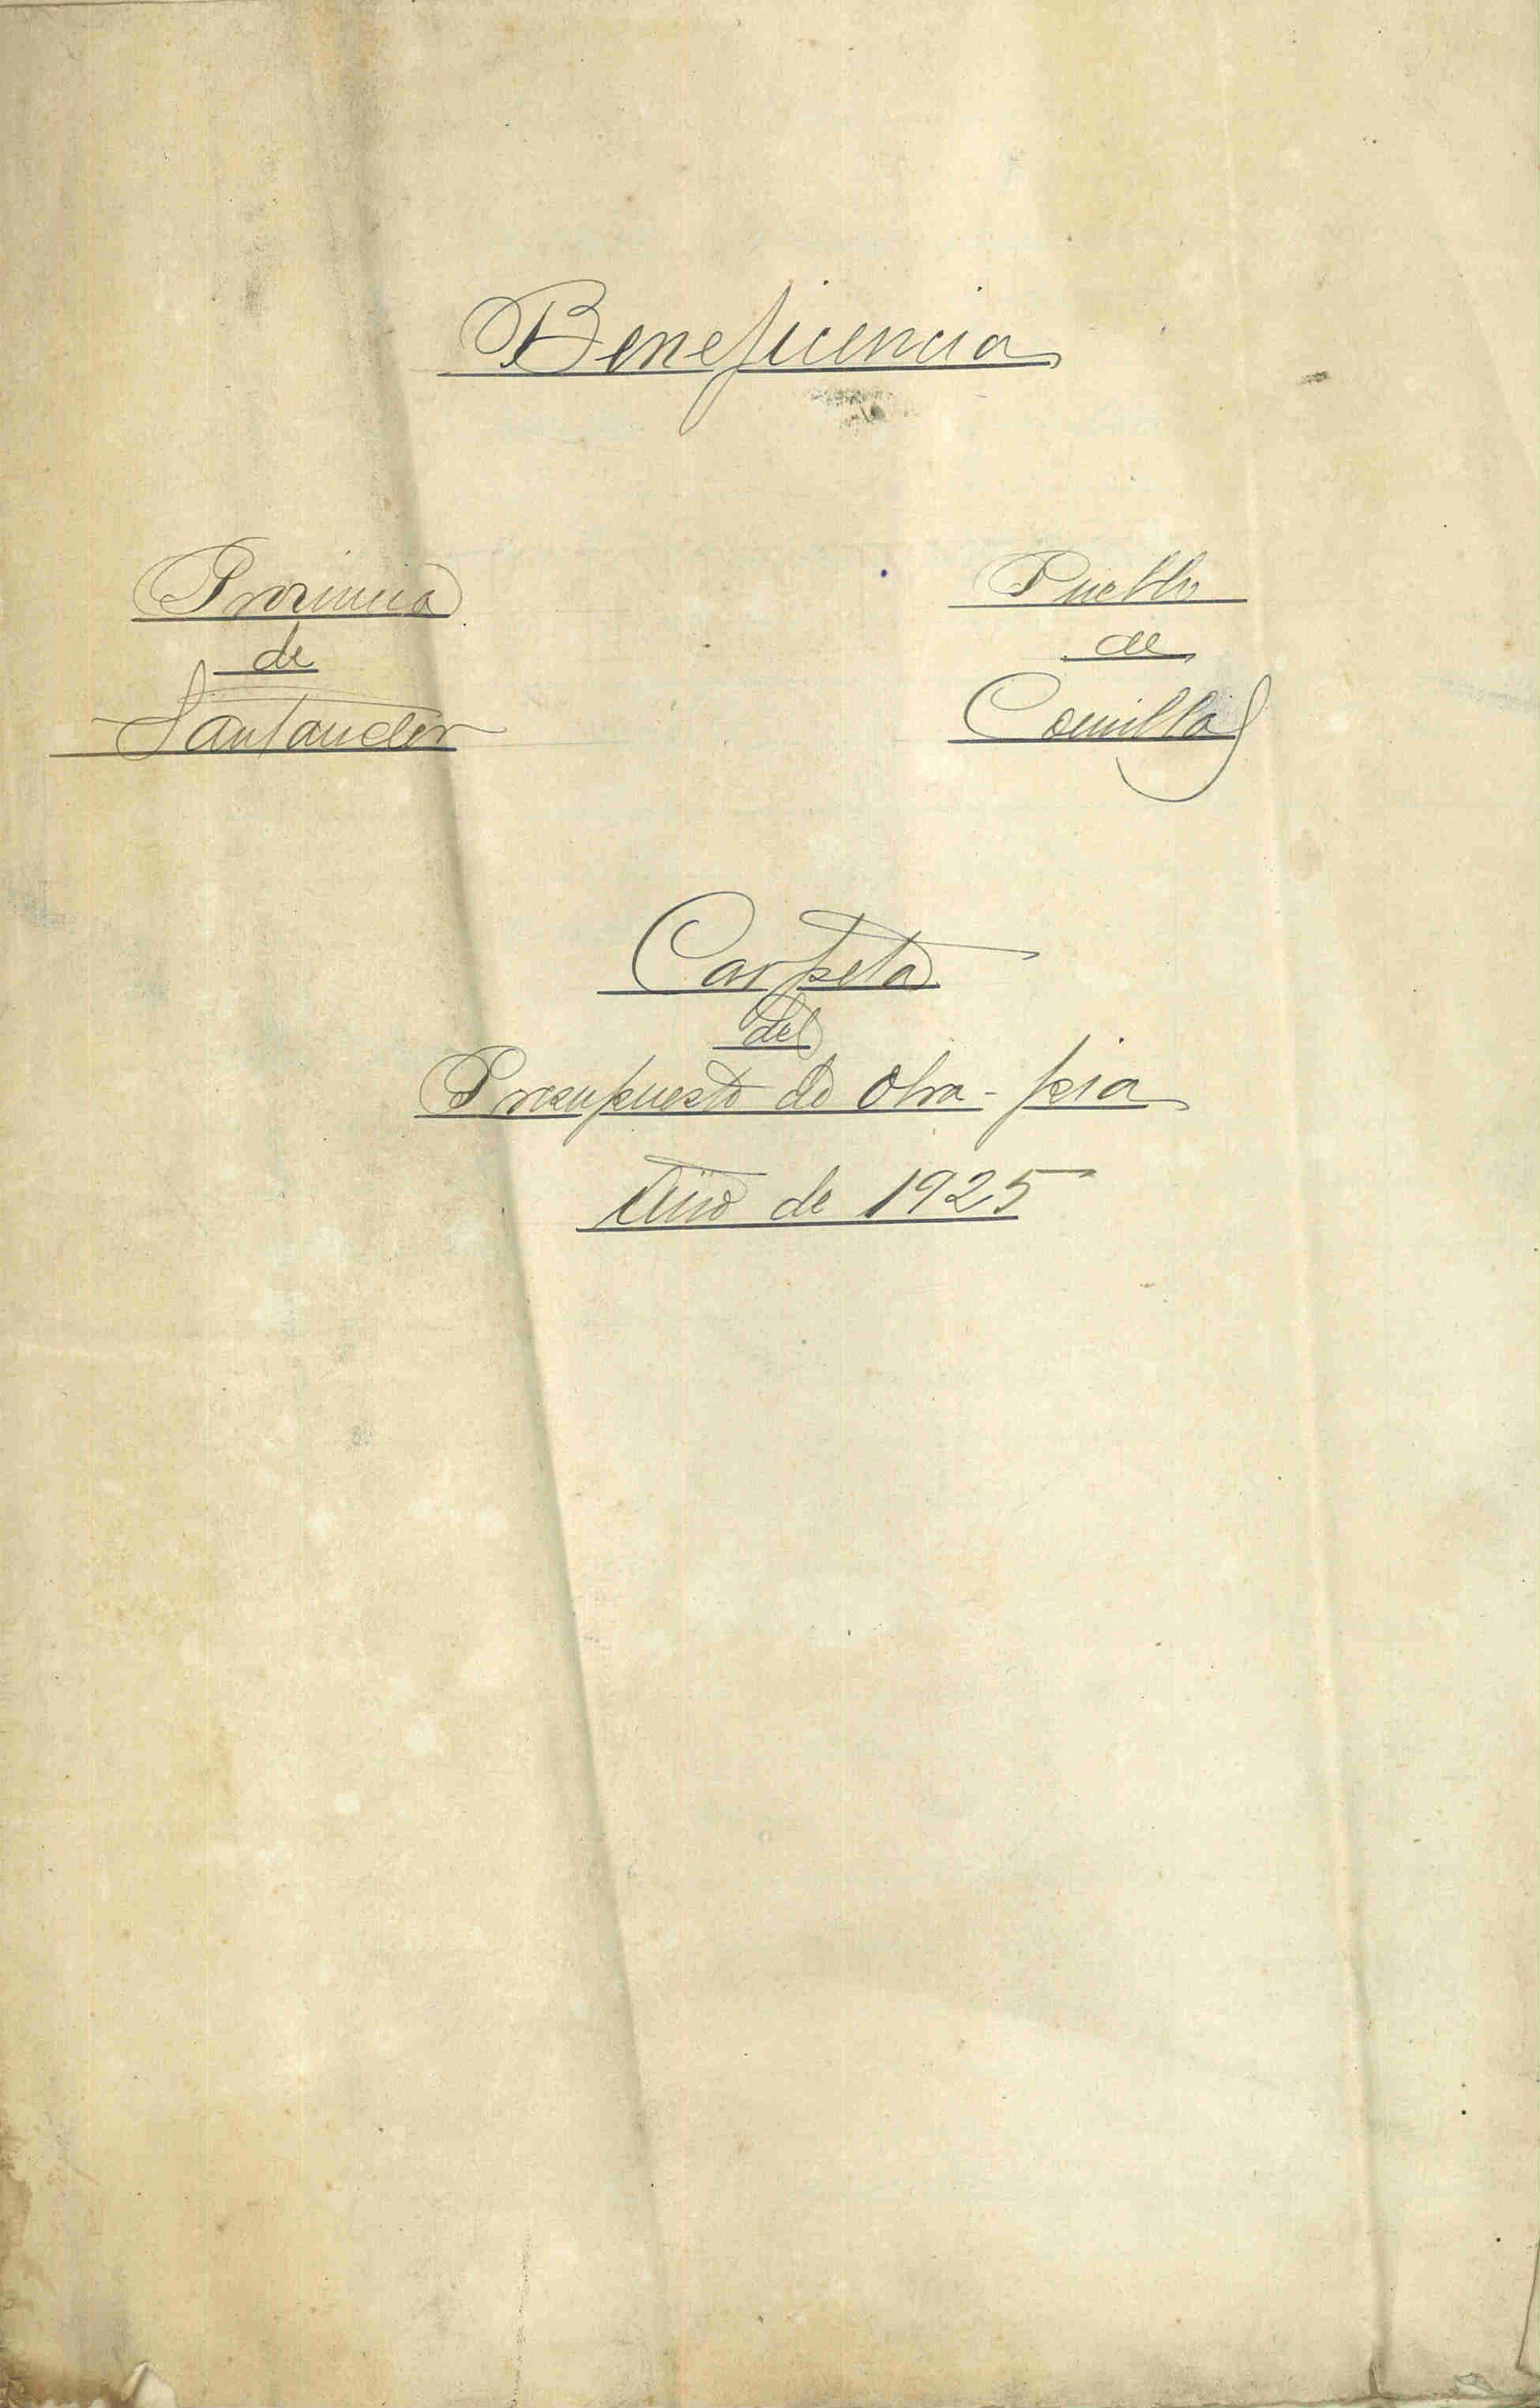 Beneficencia
Provincia
de
Santander
Pueblo
de
Comillas
Carpeta
del
Presupuesto de Obra-pia
Año de 1925